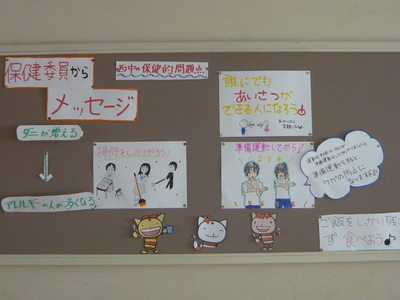 保健委員から
メッセージ
西中の保健的問題点
誰にでも
あいさつが
できる人になろう
ダニが増える
↓
アレルギーの人が多くなる
掃除をしっかりやろう!
準備運動してから
1 2 3 4
準備運動を
ケガの防止に
なりますよ
ご飯をしっかり残さ
ず食べよう♪